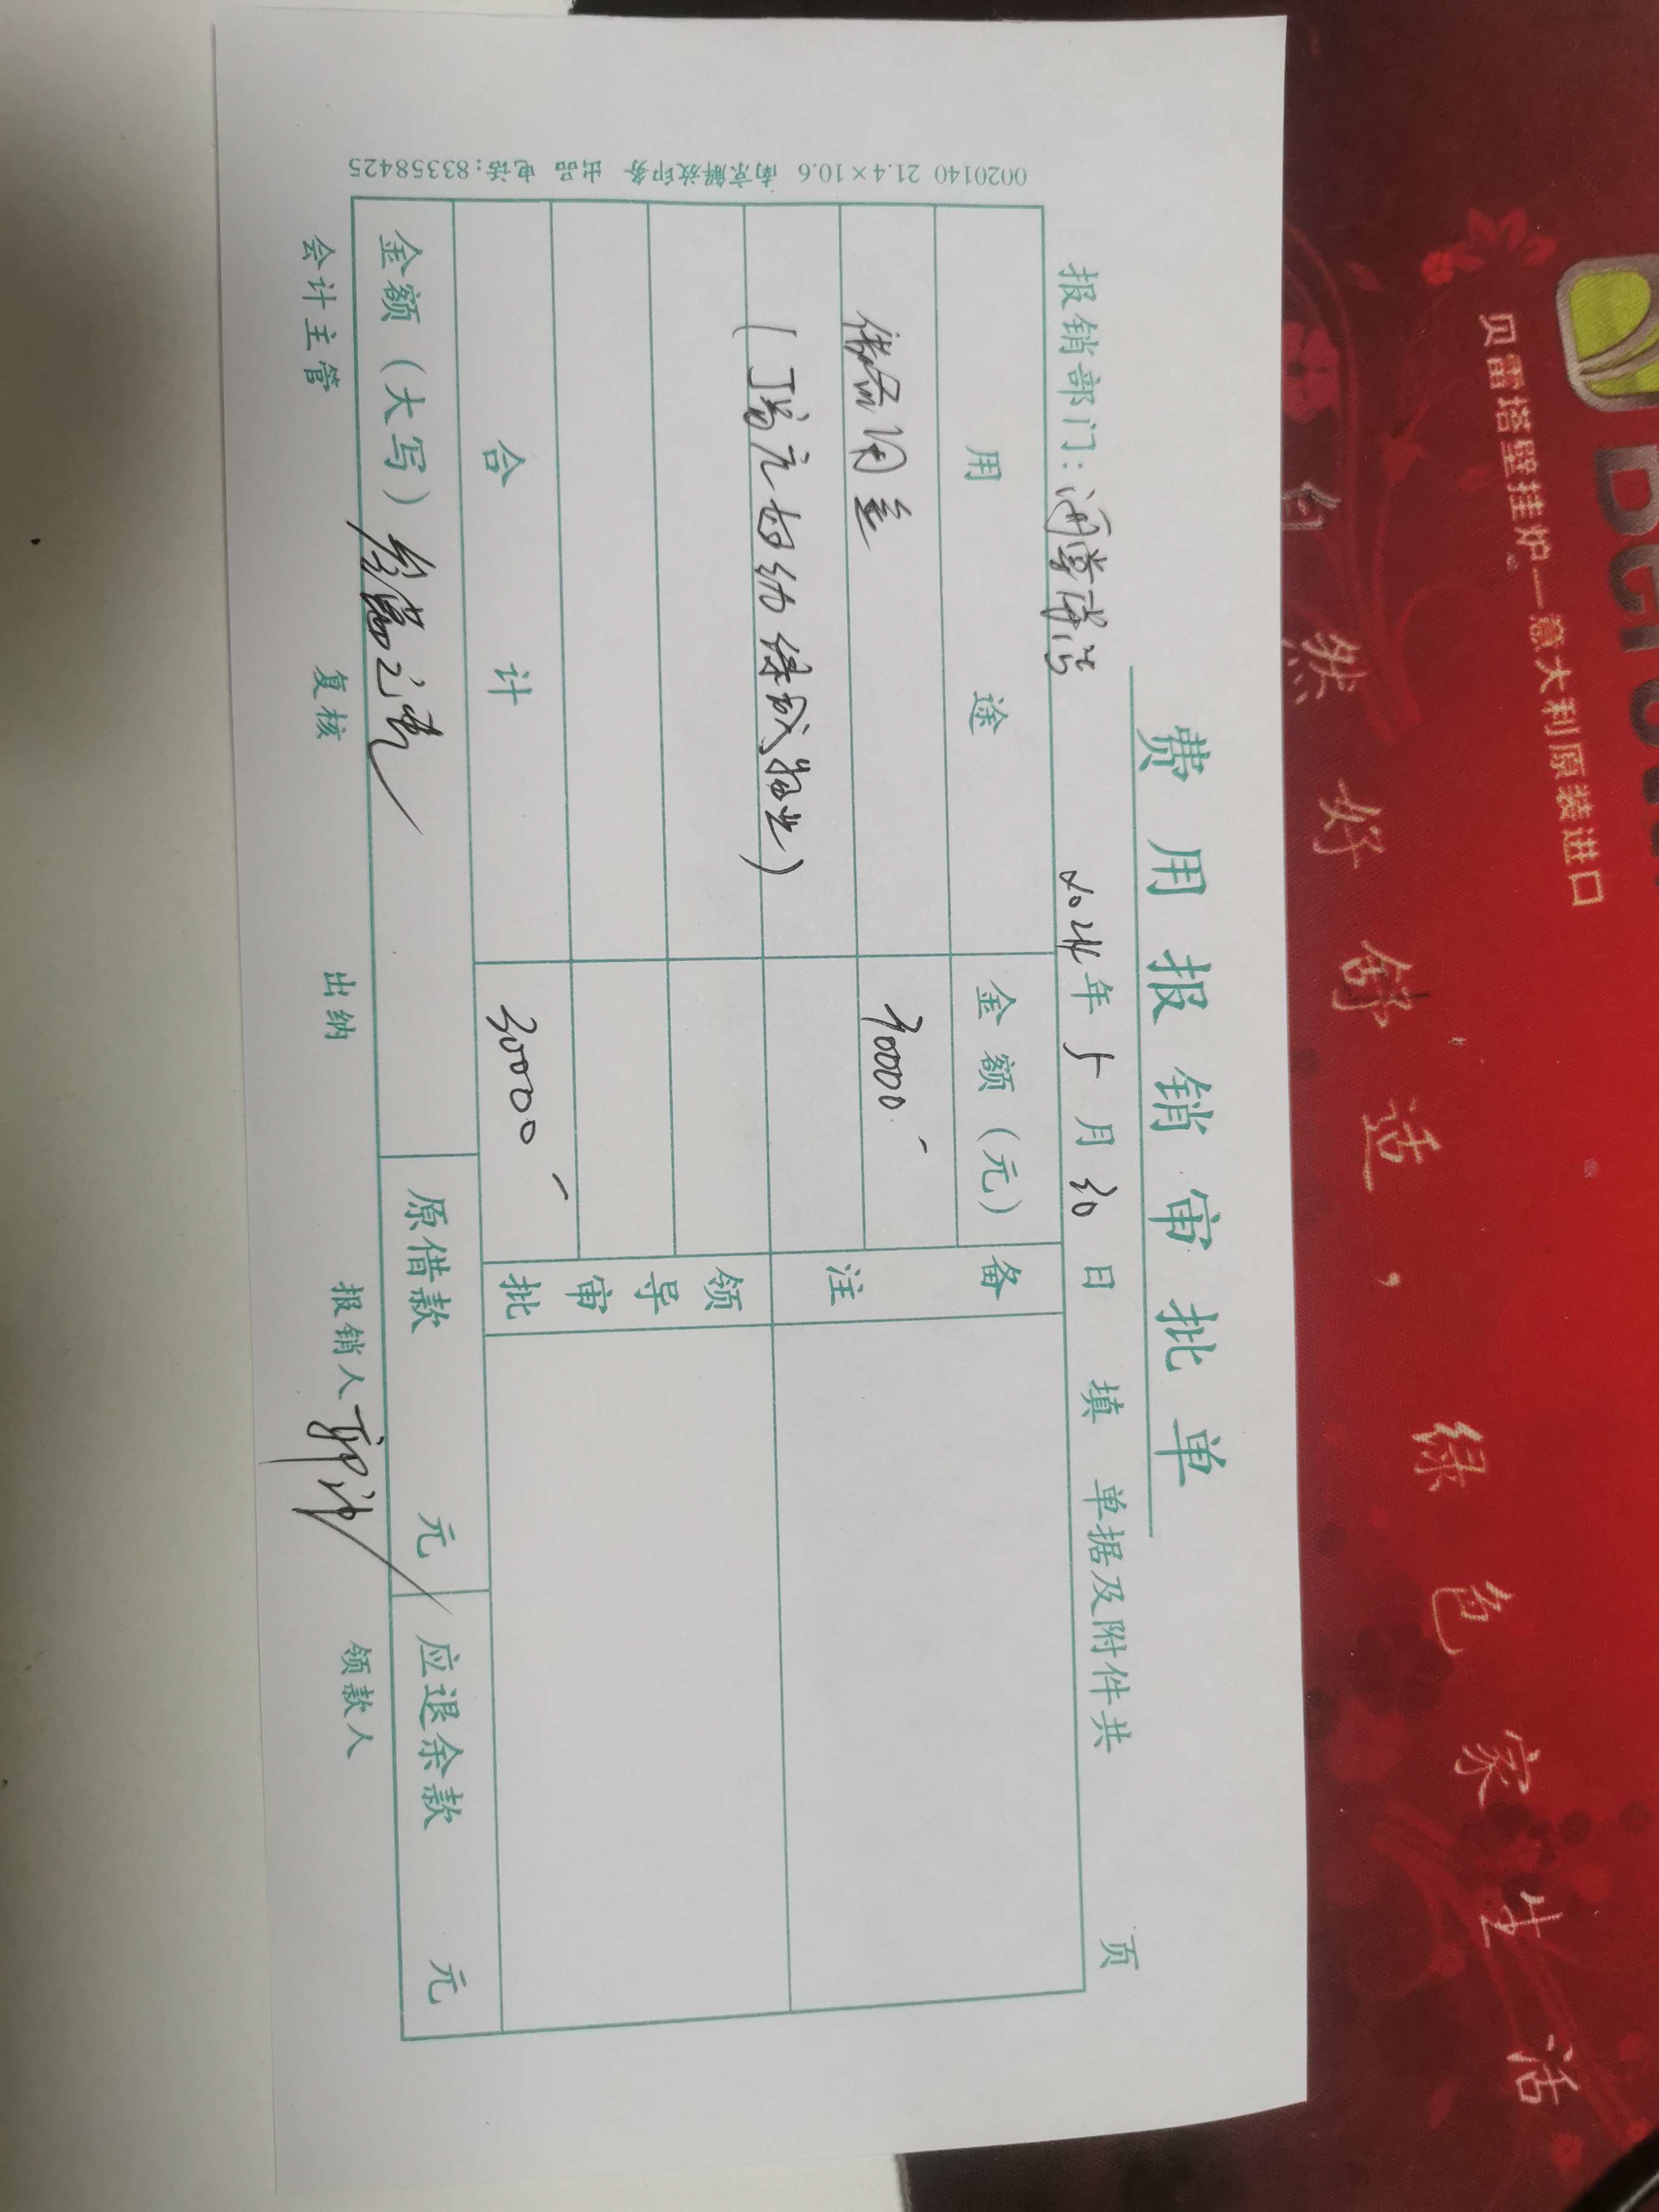 费用报销审批单
报销部门:
2024年5月30日填
单据及附件共 页
用途
金额(元)
备注
备用金
30000
领导审批
合计
30000
金额(大写)叁萬元
原借款 元
应退余款 元
会计主管
复核
出纳
报销人
领款人
0020140 21.4×10.6 南京解放印务 出品 电话:83358425
贝雷塔壁挂炉—意大利原装进口
自然好舒适,绿色家生活